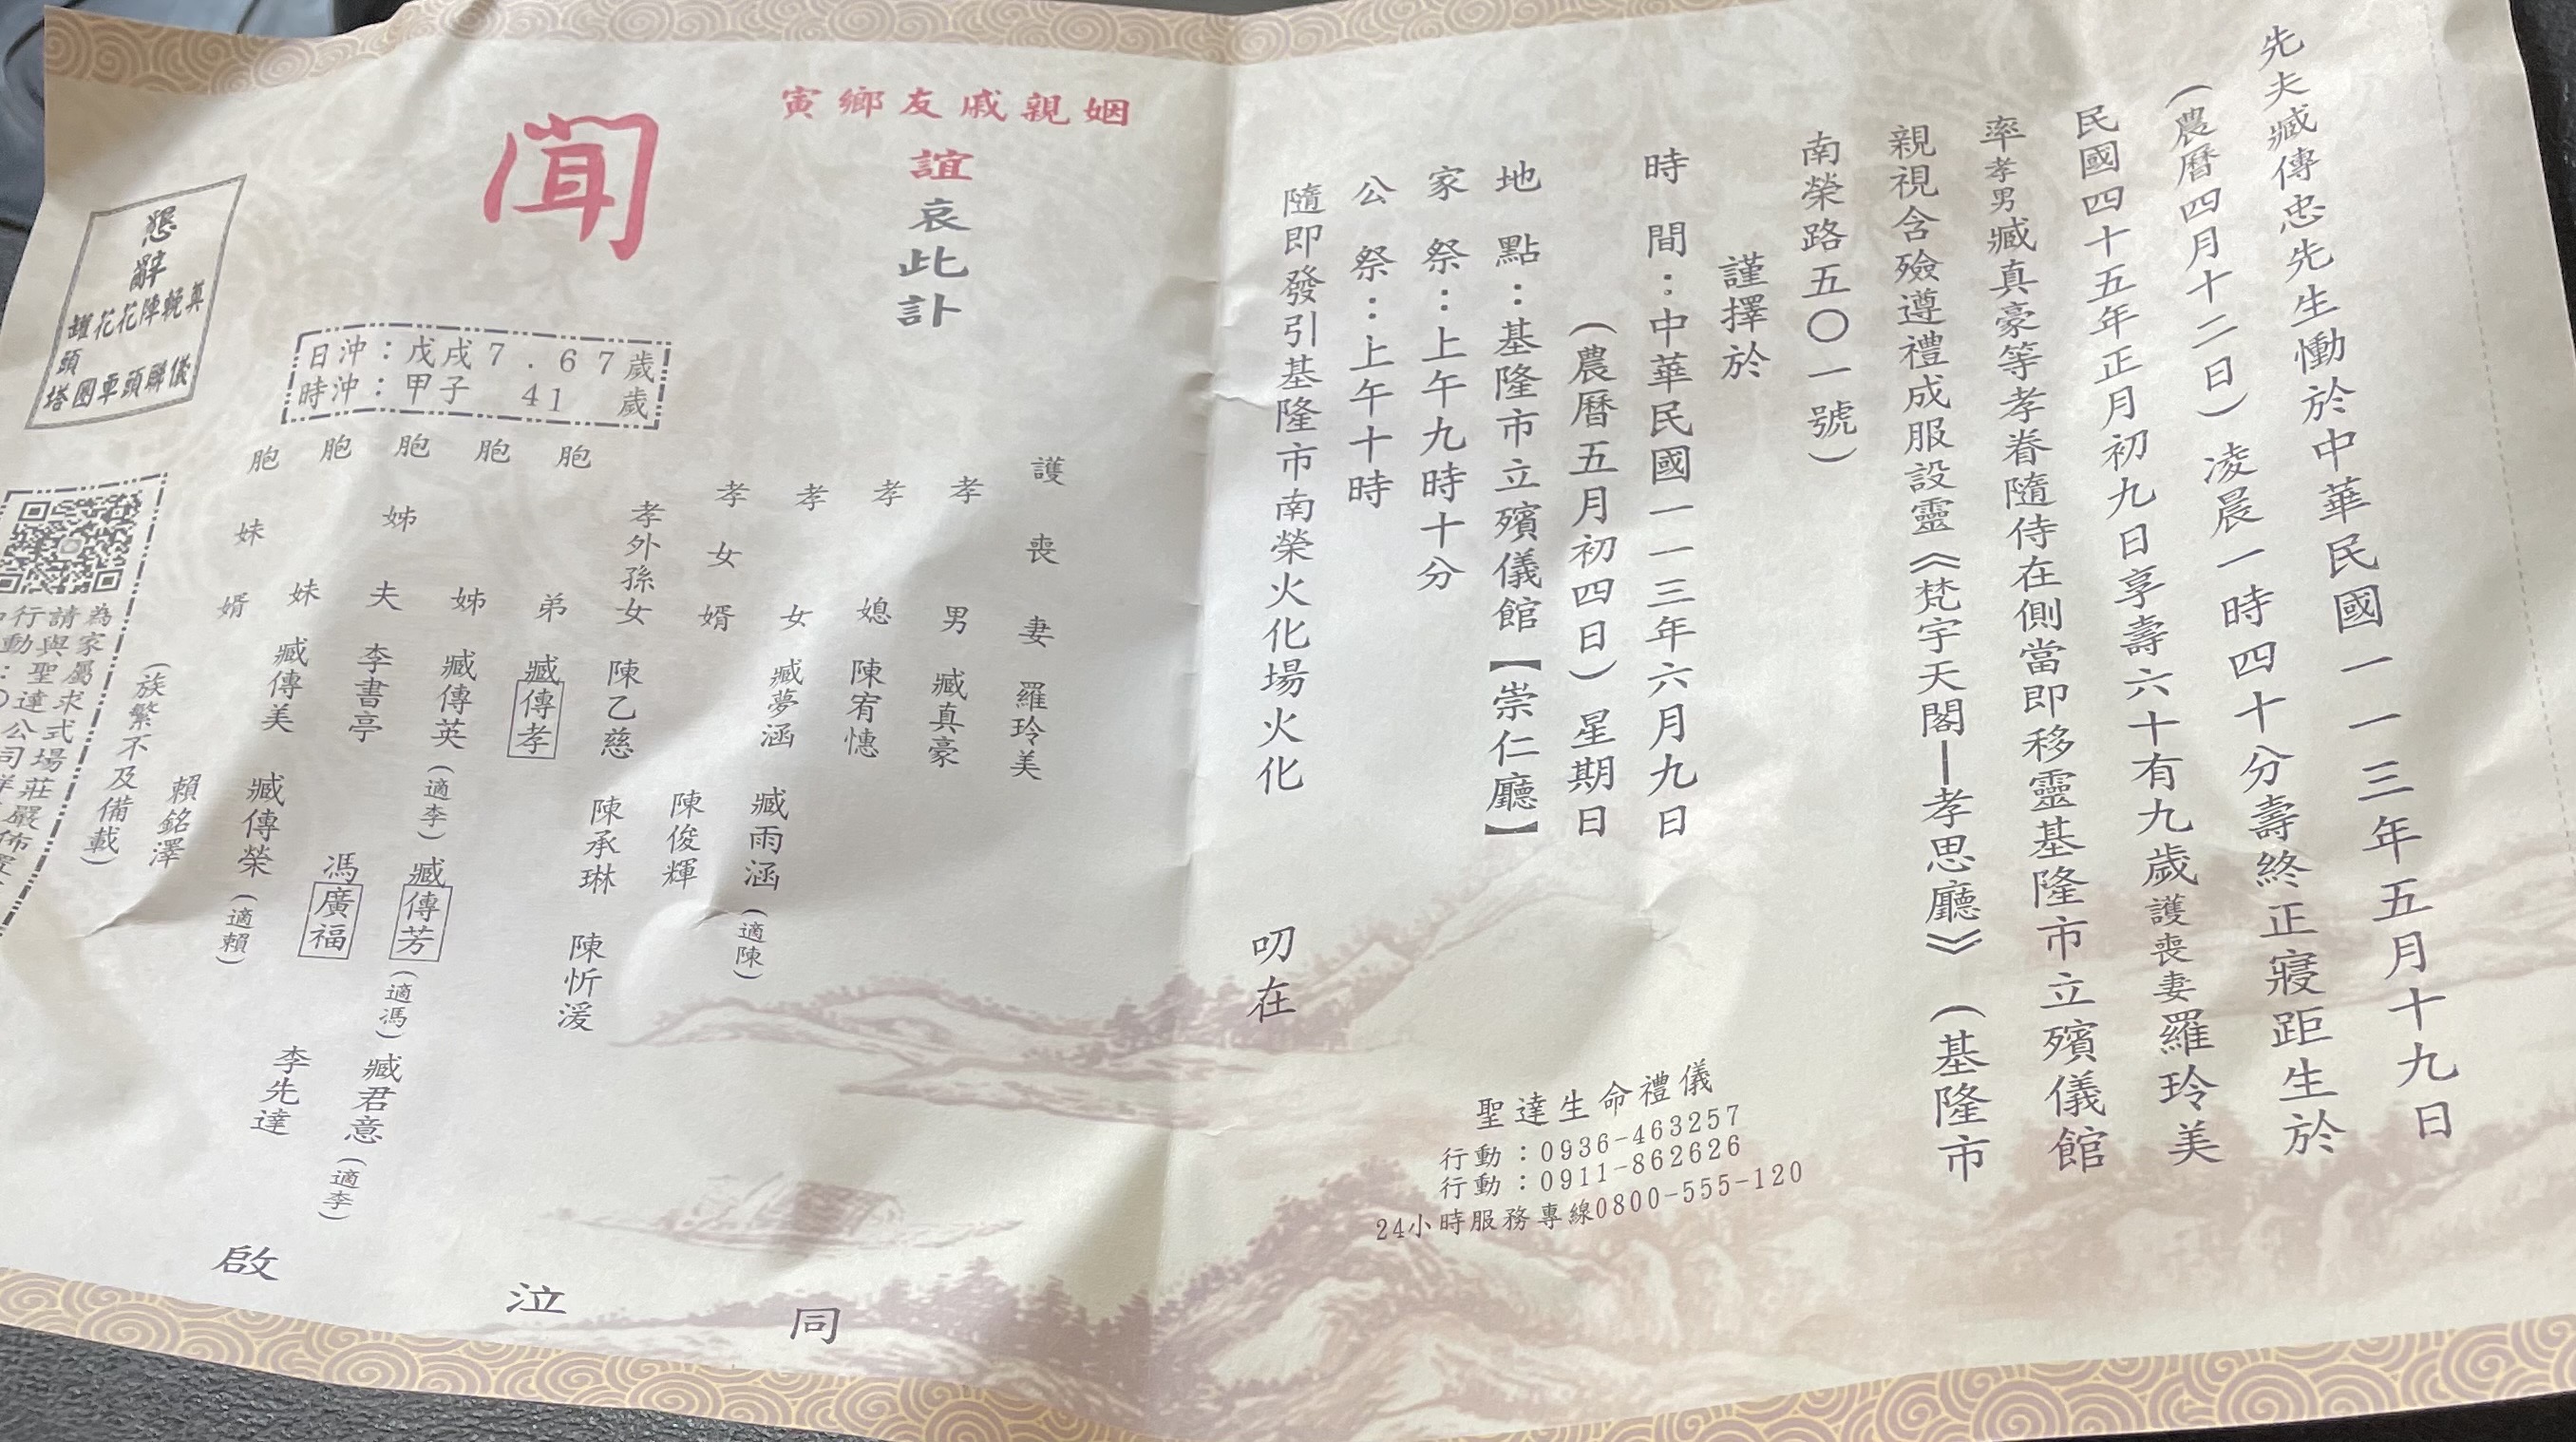 先夫臧傳忠先生慟於中華民國一一三年五月十九日
(農曆四月十二日)凌晨一時四十分壽終正寢距生於
民國四十五年正月初九日享壽六十有九歲護喪妻羅玲美
率孝男臧真豪等孝眷隨侍在側當即移靈基隆市立殯儀館
親視含殮遵禮成服設靈《梵宇天閣—孝思廳》(基隆市
南榮路五〇一號)
謹擇於
時間:中華民國一一三年六月九日
(農曆五月初四日)星期日
地點:基隆市立殯儀館【崇仁廳】
家祭:上午九時十分
公祭:上午十時
隨即發引基隆市南榮火化場火化
叨在
聖達生命禮儀
行動:0936-463257
行動:0911-862626
24小時服務專線0800-555-120
寅鄉友戚親姻
誼哀此訃
聞
護喪妻 羅玲美
孝男 臧真豪
孝媳 陳宥憓
孝女 臧夢涵 臧雨涵(適陳)
孝女婿 陳俊輝
孝外孫女 陳乙慈 陳承琳 陳忻湲
胞弟 臧傳孝
胞姊 臧傳英(適李) 臧傳芳(適馮) 臧君意(適李)
胞姊夫 李書亭 馮廣福 李先達
胞妹 臧傳美 臧傳榮(適賴)
胞妹婿 賴銘澤
(族繁不及備載)
同泣啟
日沖:戊戌7.67歲
時沖:甲子 41 歲
懇辭
奠輓陣花花罐頭
儀聯頭車圈塔
為家屬求式場莊嚴佈
請與聖達公司